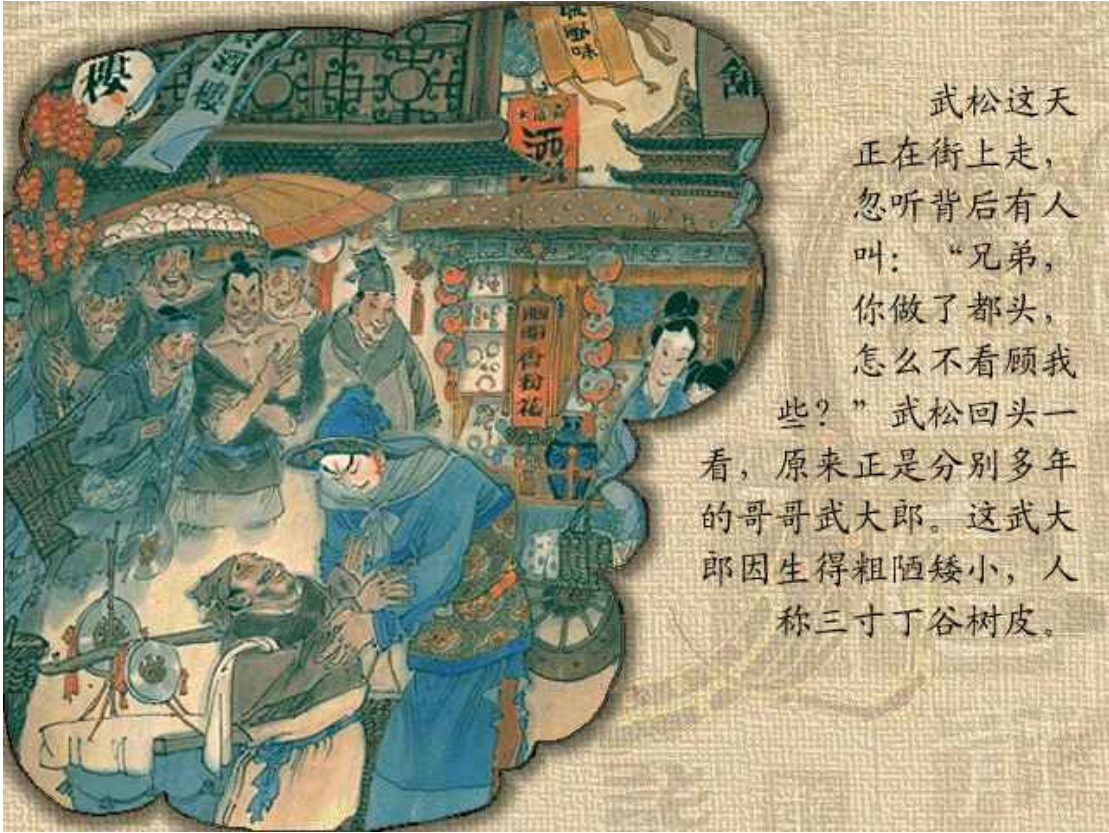 武松这天
正在街上走，
忽听背后有人
叫：“兄弟，
你做了都头，
怎么不看顾我
些？”武松回头一
看，原来正是分别多年
的哥哥武大郎。这武大
郎因生得粗陋矮小，人
称三寸丁谷树皮。
楼
酒
香粉花